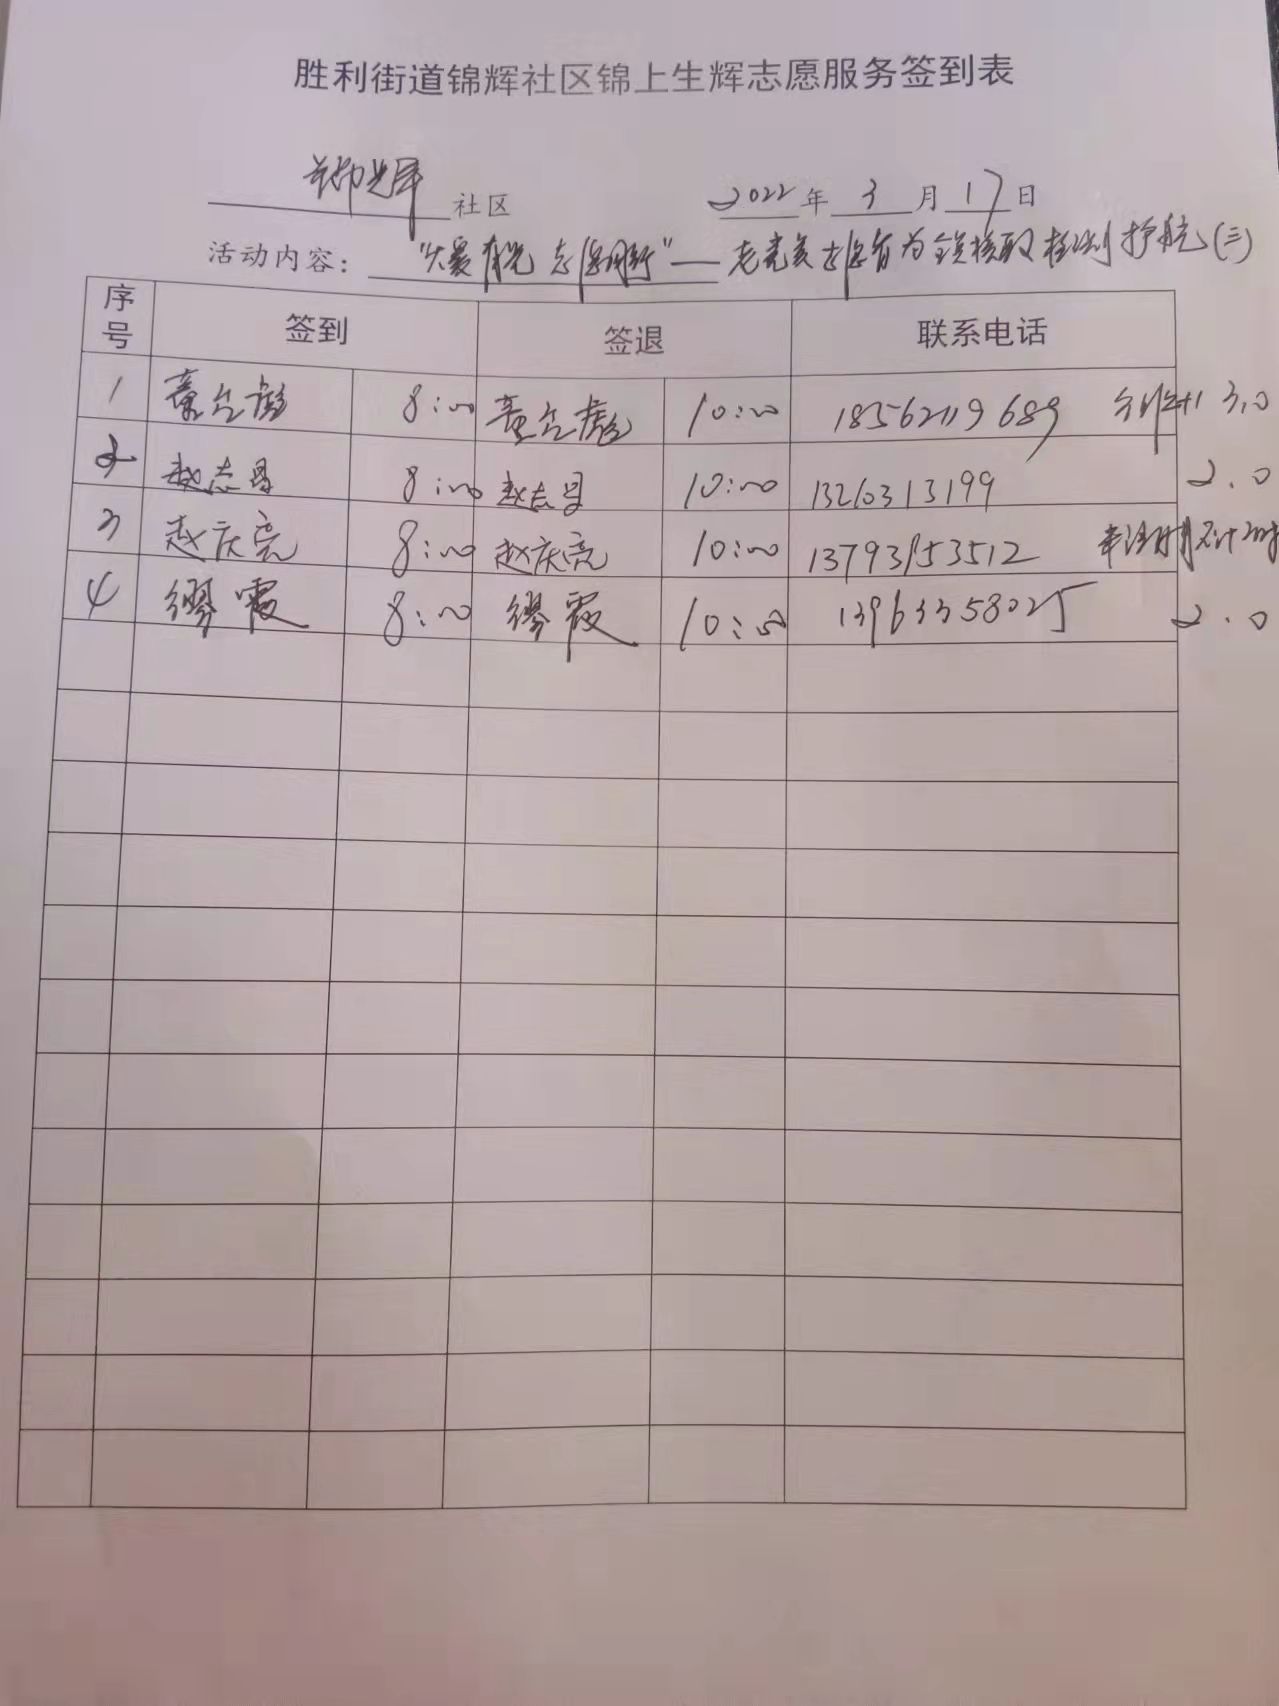 胜利街道锦辉社区锦上生辉志愿服务签到表
锦辉 社区 2022 年 3 月 17 日
活动内容： 老党员志愿者为全员核酸检测护航(三)
序号 签到 签退 联系电话
1 8:00 10:00 18562119689 3.0
2 赵志昌 8:00 赵志昌 10:00 13210313199 2.0
3 赵庆亮 8:00 赵庆亮 10:00 13793153512
4 缪霞 8:00 缪霞 10:00 13963358025 2.0